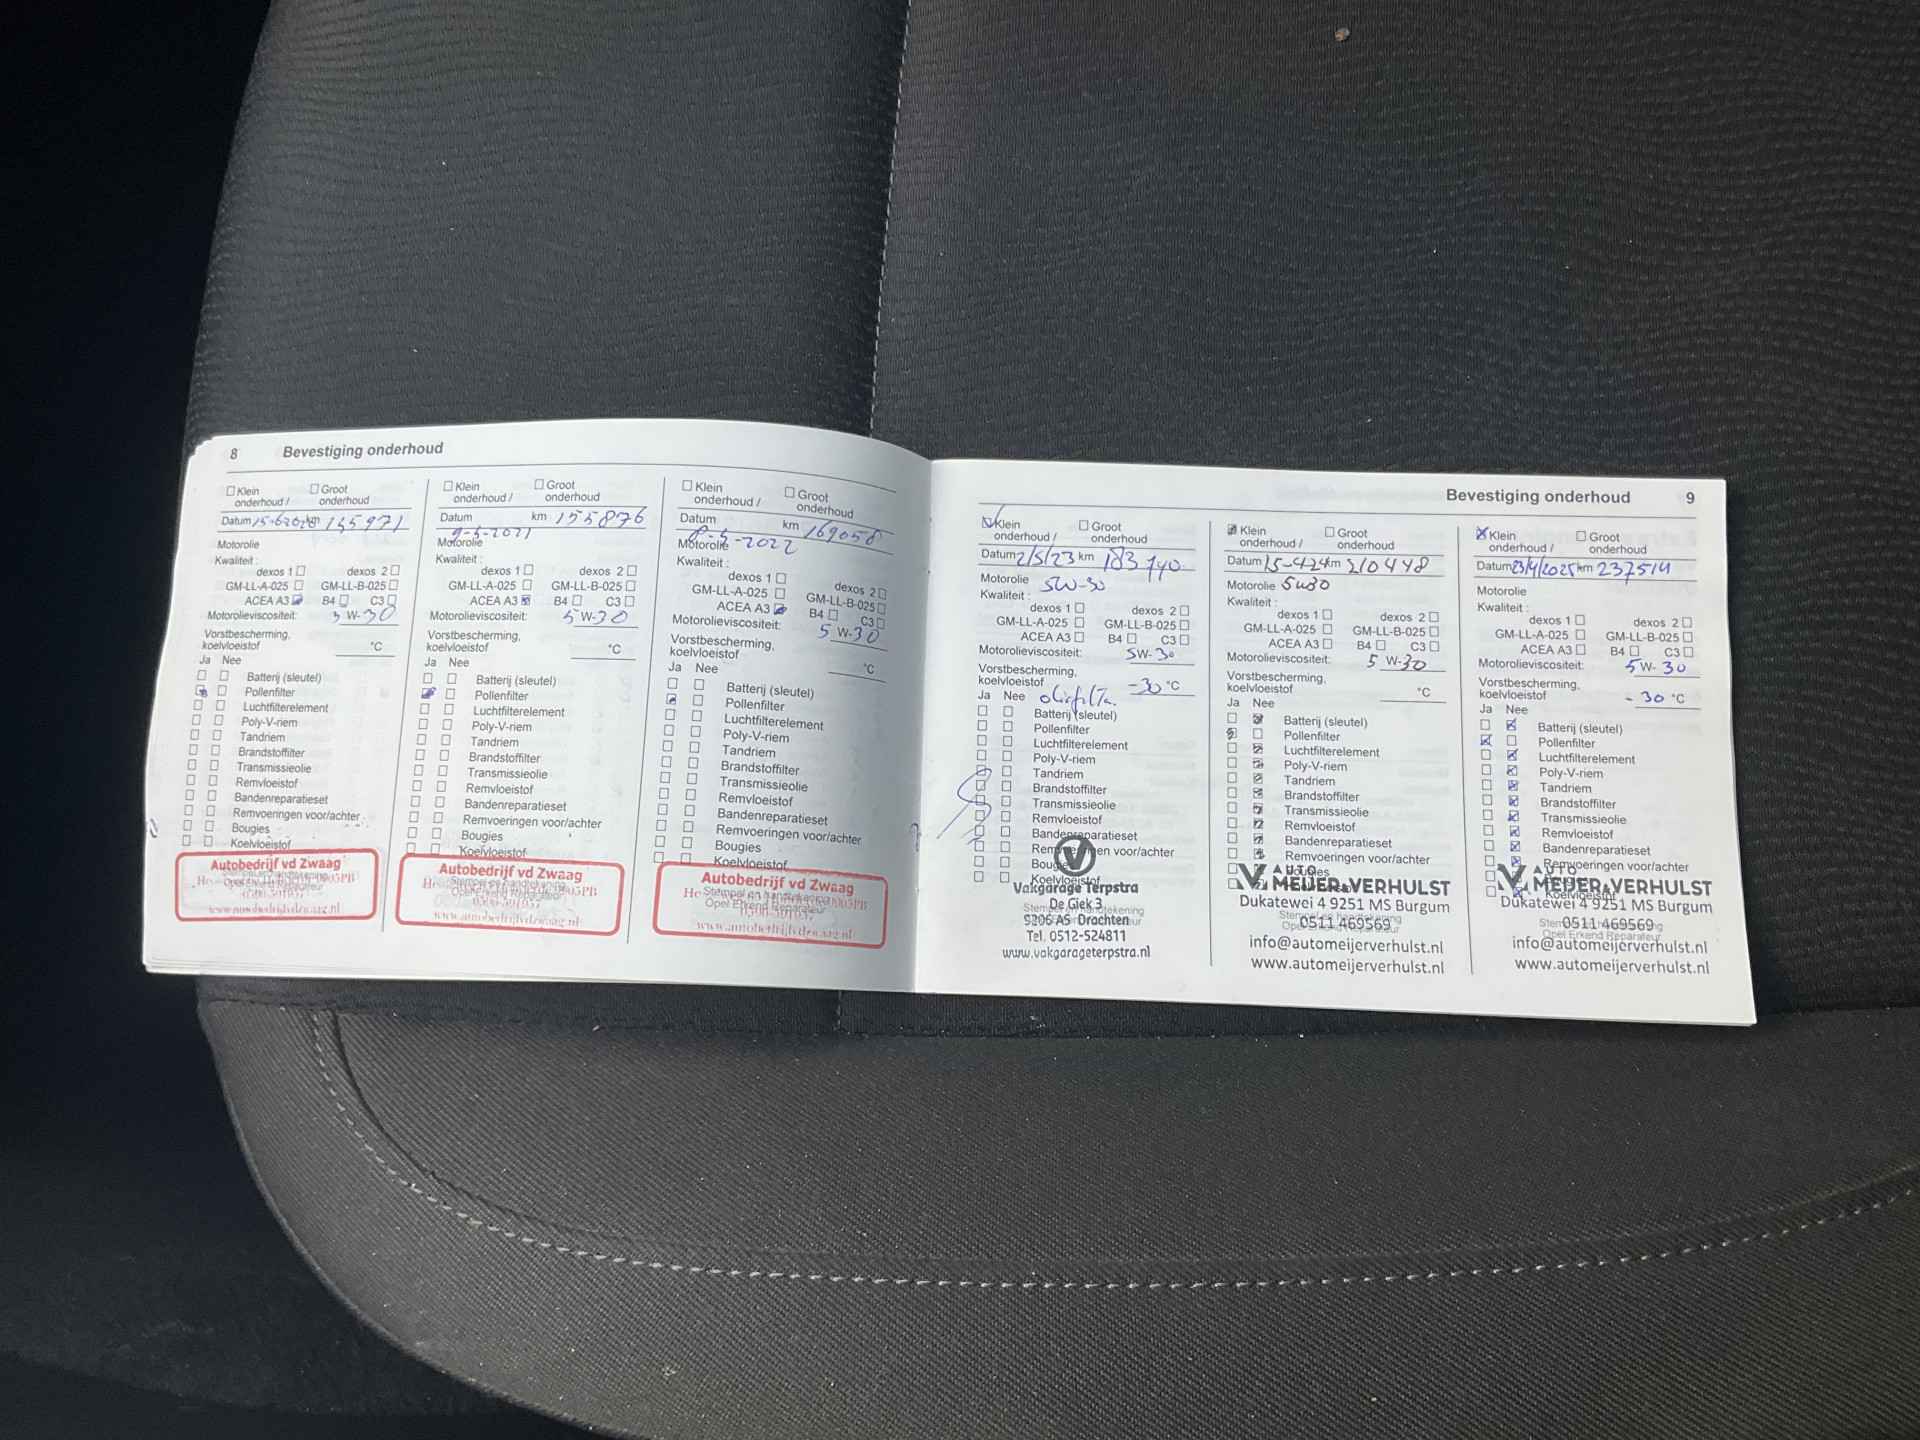 8 Bevestiging onderhoud
Klein onderhoud / Groot onderhoud
Datum 15-6 2020 km 135971
Motorolie
Kwaliteit :
dexos 1 dexos 2
GM-LL-A-025 GM-LL-B-025
ACEA A3 B4 C3
Motorolieviscositeit: 5 W-30
Vorstbescherming,
koelvloeistof °C
Ja Nee
Batterij (sleutel)
Pollenfilter
Luchtfilterelement
Poly-V-riem
Tandriem
Brandstoffilter
Transmissieolie
Remvloeistof
Bandenreparatieset
Remvoeringen voor/achter
Bougies
Koelvloeistof
Autobedrijf vd Zwaag
Opel Erkend Reparateur
www.autobedrijfvdzwaag.nl
Klein onderhoud / Groot onderhoud
Datum km 155876
9-5-2021
Motorolie
Kwaliteit :
dexos 1 dexos 2
GM-LL-A-025 GM-LL-B-025
ACEA A3 B4 C3
Motorolieviscositeit: 5 W-30
Vorstbescherming,
koelvloeistof °C
Ja Nee
Batterij (sleutel)
Pollenfilter
Luchtfilterelement
Poly-V-riem
Tandriem
Brandstoffilter
Transmissieolie
Remvloeistof
Bandenreparatieset
Remvoeringen voor/achter
Bougies
Koelvloeistof
Autobedrijf vd Zwaag
www.autobedrijfvdzwaag.nl
Klein onderhoud / Groot onderhoud
Datum km 169058
8-5-2022
Motorolie
Kwaliteit :
dexos 1 dexos 2
GM-LL-A-025 GM-LL-B-025
ACEA A3 B4 C3
Motorolieviscositeit: 5 W-30
Vorstbescherming,
koelvloeistof °C
Ja Nee
Batterij (sleutel)
Pollenfilter
Luchtfilterelement
Poly-V-riem
Tandriem
Brandstoffilter
Transmissieolie
Remvloeistof
Bandenreparatieset
Remvoeringen voor/achter
Bougies
Koelvloeistof
Autobedrijf vd Zwaag
Stempel en handtekening
Opel Erkend Reparateur
www.autobedrijfvdzwaag.nl
Bevestiging onderhoud 9
Klein onderhoud / Groot onderhoud
Datum 2/5/23 km 183740
Motorolie 5W-30
Kwaliteit :
dexos 1 dexos 2
GM-LL-A-025 GM-LL-B-025
ACEA A3 B4 C3
Motorolieviscositeit: 5W-30
Vorstbescherming,
koelvloeistof -30 °C
Ja Nee
Batterij (sleutel)
Pollenfilter
Luchtfilterelement
Poly-V-riem
Tandriem
Brandstoffilter
Transmissieolie
Remvloeistof
Bandenreparatieset
Remvoeringen voor/achter
Bougies
Koelvloeistof
Vakgarage Terpstra
De Giek 3
Stempel en handtekening
9206 AS Drachten
Tel. 0512-524811
www.vakgarageterpstra.nl
Klein onderhoud / Groot onderhoud
Datum 15-4-24 km 210448
Motorolie 5W30
Kwaliteit :
dexos 1 dexos 2
GM-LL-A-025 GM-LL-B-025
ACEA A3 B4 C3
Motorolieviscositeit: 5 W-30
Vorstbescherming,
koelvloeistof °C
Ja Nee
Batterij (sleutel)
Pollenfilter
Luchtfilterelement
Poly-V-riem
Tandriem
Brandstoffilter
Transmissieolie
Remvloeistof
Bandenreparatieset
Remvoeringen voor/achter
Bougies
AUTO
MEIJER & VERHULST
Dukatewei 4 9251 MS Burgum
0511 469569
info@automeijerverhulst.nl
www.automeijerverhulst.nl
Klein onderhoud / Groot onderhoud
Datum 23/4/2025 km 237514
Motorolie
Kwaliteit :
dexos 1 dexos 2
GM-LL-A-025 GM-LL-B-025
ACEA A3 B4 C3
Motorolieviscositeit: 5 W-30
Vorstbescherming,
koelvloeistof -30 °C
Ja Nee
Batterij (sleutel)
Pollenfilter
Luchtfilterelement
Poly-V-riem
Tandriem
Brandstoffilter
Transmissieolie
Remvloeistof
Bandenreparatieset
Remvoeringen voor/achter
AUTO
MEIJER & VERHULST
Dukatewei 4 9251 MS Burgum
0511 469569
Opel Erkend Reparateur
info@automeijerverhulst.nl
www.automeijerverhulst.nl